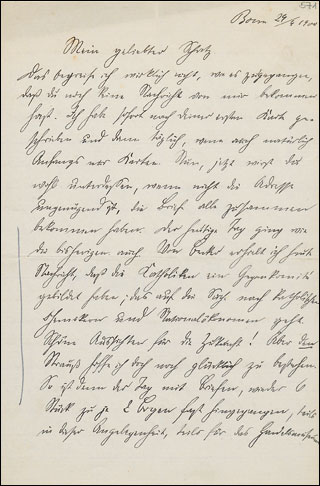 571
Bonn 29/6 1900
Mein geliebter Schatz
Das begreife ich wirklich nicht, wie es zugegangen,
daß du noch keine Nachricht von mir bekommen
hast. Ich habe sofort nach deiner ersten Karte ge-
schrieben und dann täglich, wenn auch natürlich
Anfangs nur Karten. Nun, jetzt wirst du
wohl unterdessen, wenn nicht die Adresse
ungenügend ist, die Briefe alle zusammen
bekommen haben. Der heutige Tag ging wie
die bisherigen auch. Von Becker erhielt ich heute
Nachricht, daß die Katholiken ein Gegenkomité
gebildet haben; das auf die Suche nach katholischen
und Nationalökonomen geht.
Schöne Aussichten für die Zukunft! Aber den
Strauß hoffe ich doch noch glücklich zu bestehen.
So ist denn der Tag mit Briefen, wieder 6
Stück zu je 2 Bogen fast hingegangen, teils
in dieser Angelegenheit, teils für das Handelsmuseum